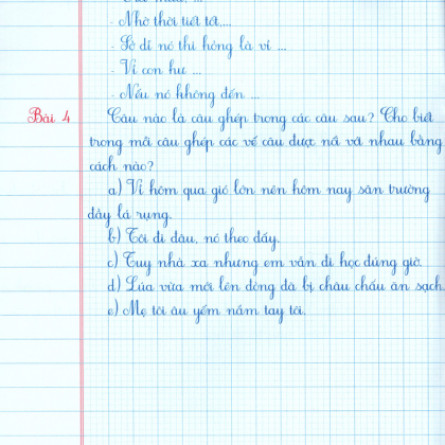 - Nhờ thời tiết tốt....
- Sở dĩ nó thi hỏng là vì ...
- Vì con hư ...
- Nếu nó không đến ...
Bài 4 Câu nào là câu ghép trong các câu sau? Cho biết
trong mỗi câu ghép các vế câu được nối với nhau bằng
cách nào?
a) Vì hôm qua gió lớn nên hôm nay sân trường
đầy lá rụng.
b) Tôi đi đâu, nó theo đấy.
c) Tuy nhà xa nhưng em vẫn đi học đúng giờ.
d) Lúa vừa mới lên đòng đã bị châu chấu ăn sạch.
e) Mẹ tôi âu yếm nắm tay tôi.